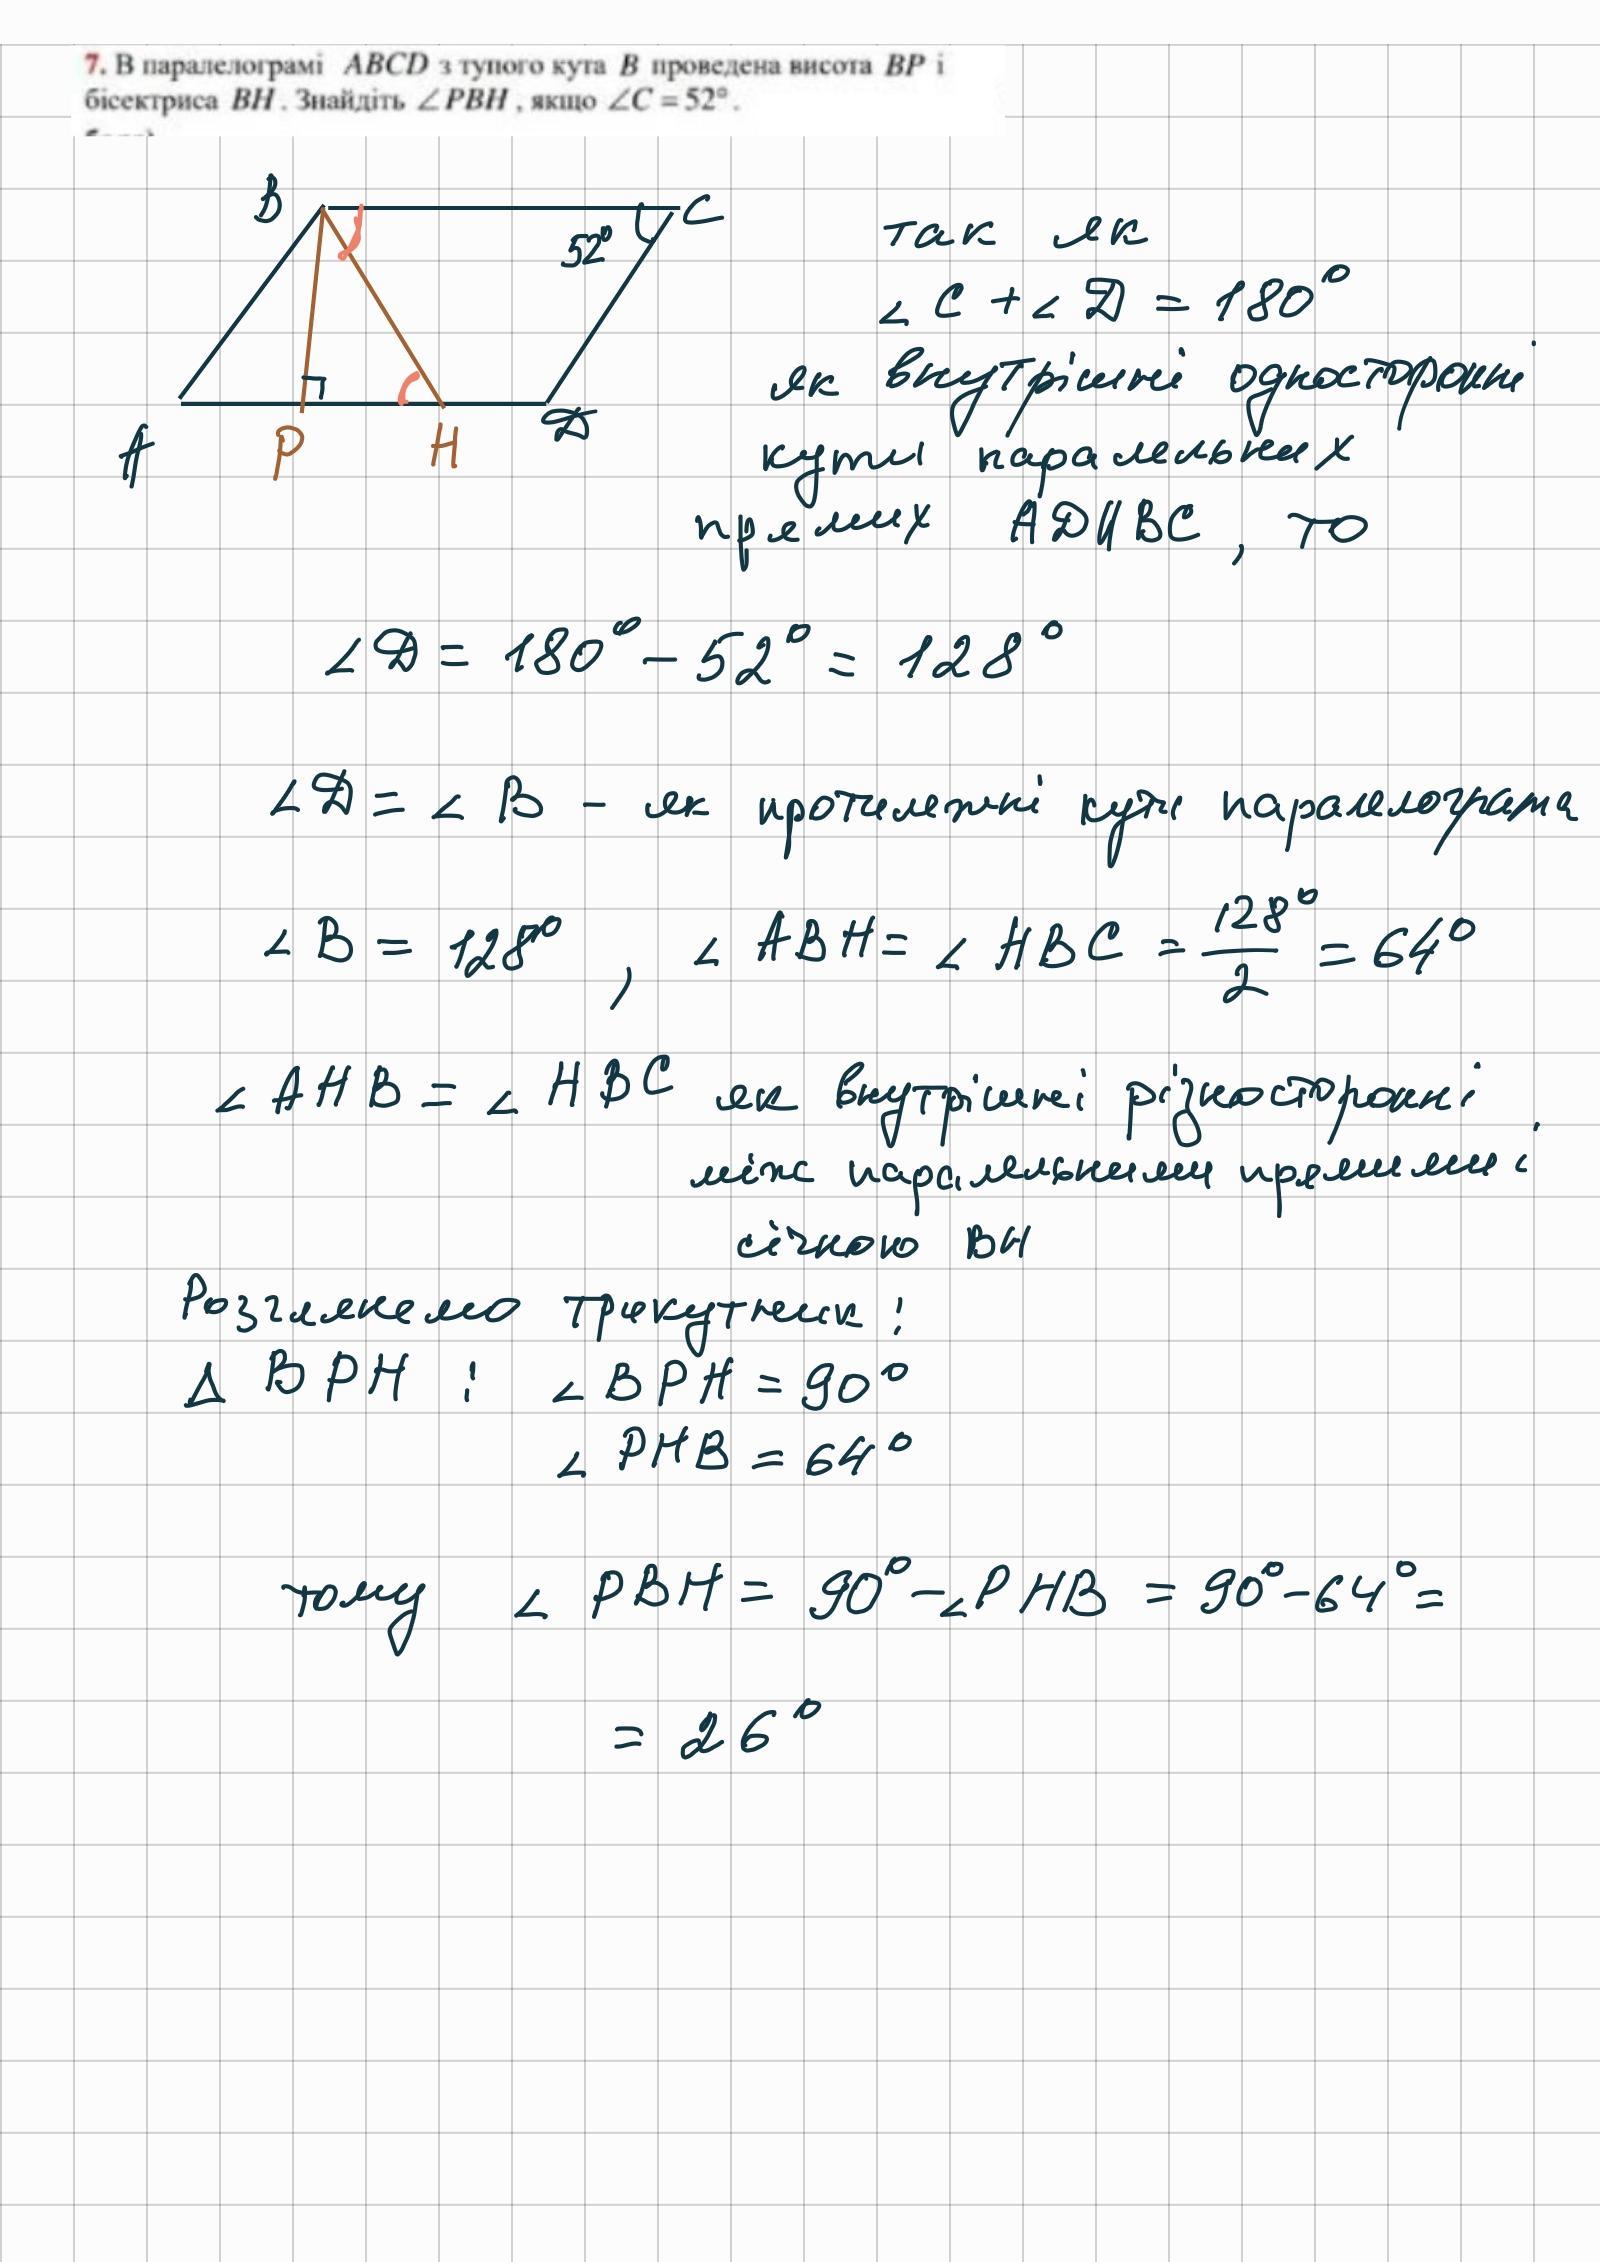 7. В паралелограмі ABCD з тупого кута B проведена висота BP і
бісектриса BH. Знайдіть ∠PBH, якщо ∠C = 52°.
B
C
52°
A
P
H
D
так як
∠C + ∠D = 180°
як внутрішні односторонні
кути паралельних
прямих AD∥BC, то
∠D = 180° − 52° = 128°
∠D = ∠B - як протилежні кути паралелограма
∠B = 128°, ∠ABH = ∠HBC = 128°/2 = 64°
∠AHB = ∠HBC як внутрішні різносторонні
між паралельними прямими і
січною BH
Розглянемо трикутник:
Δ BPH : ∠BPH = 90°
∠PHB = 64°
тому ∠PBH = 90° − ∠PHB = 90° − 64° =
= 26°